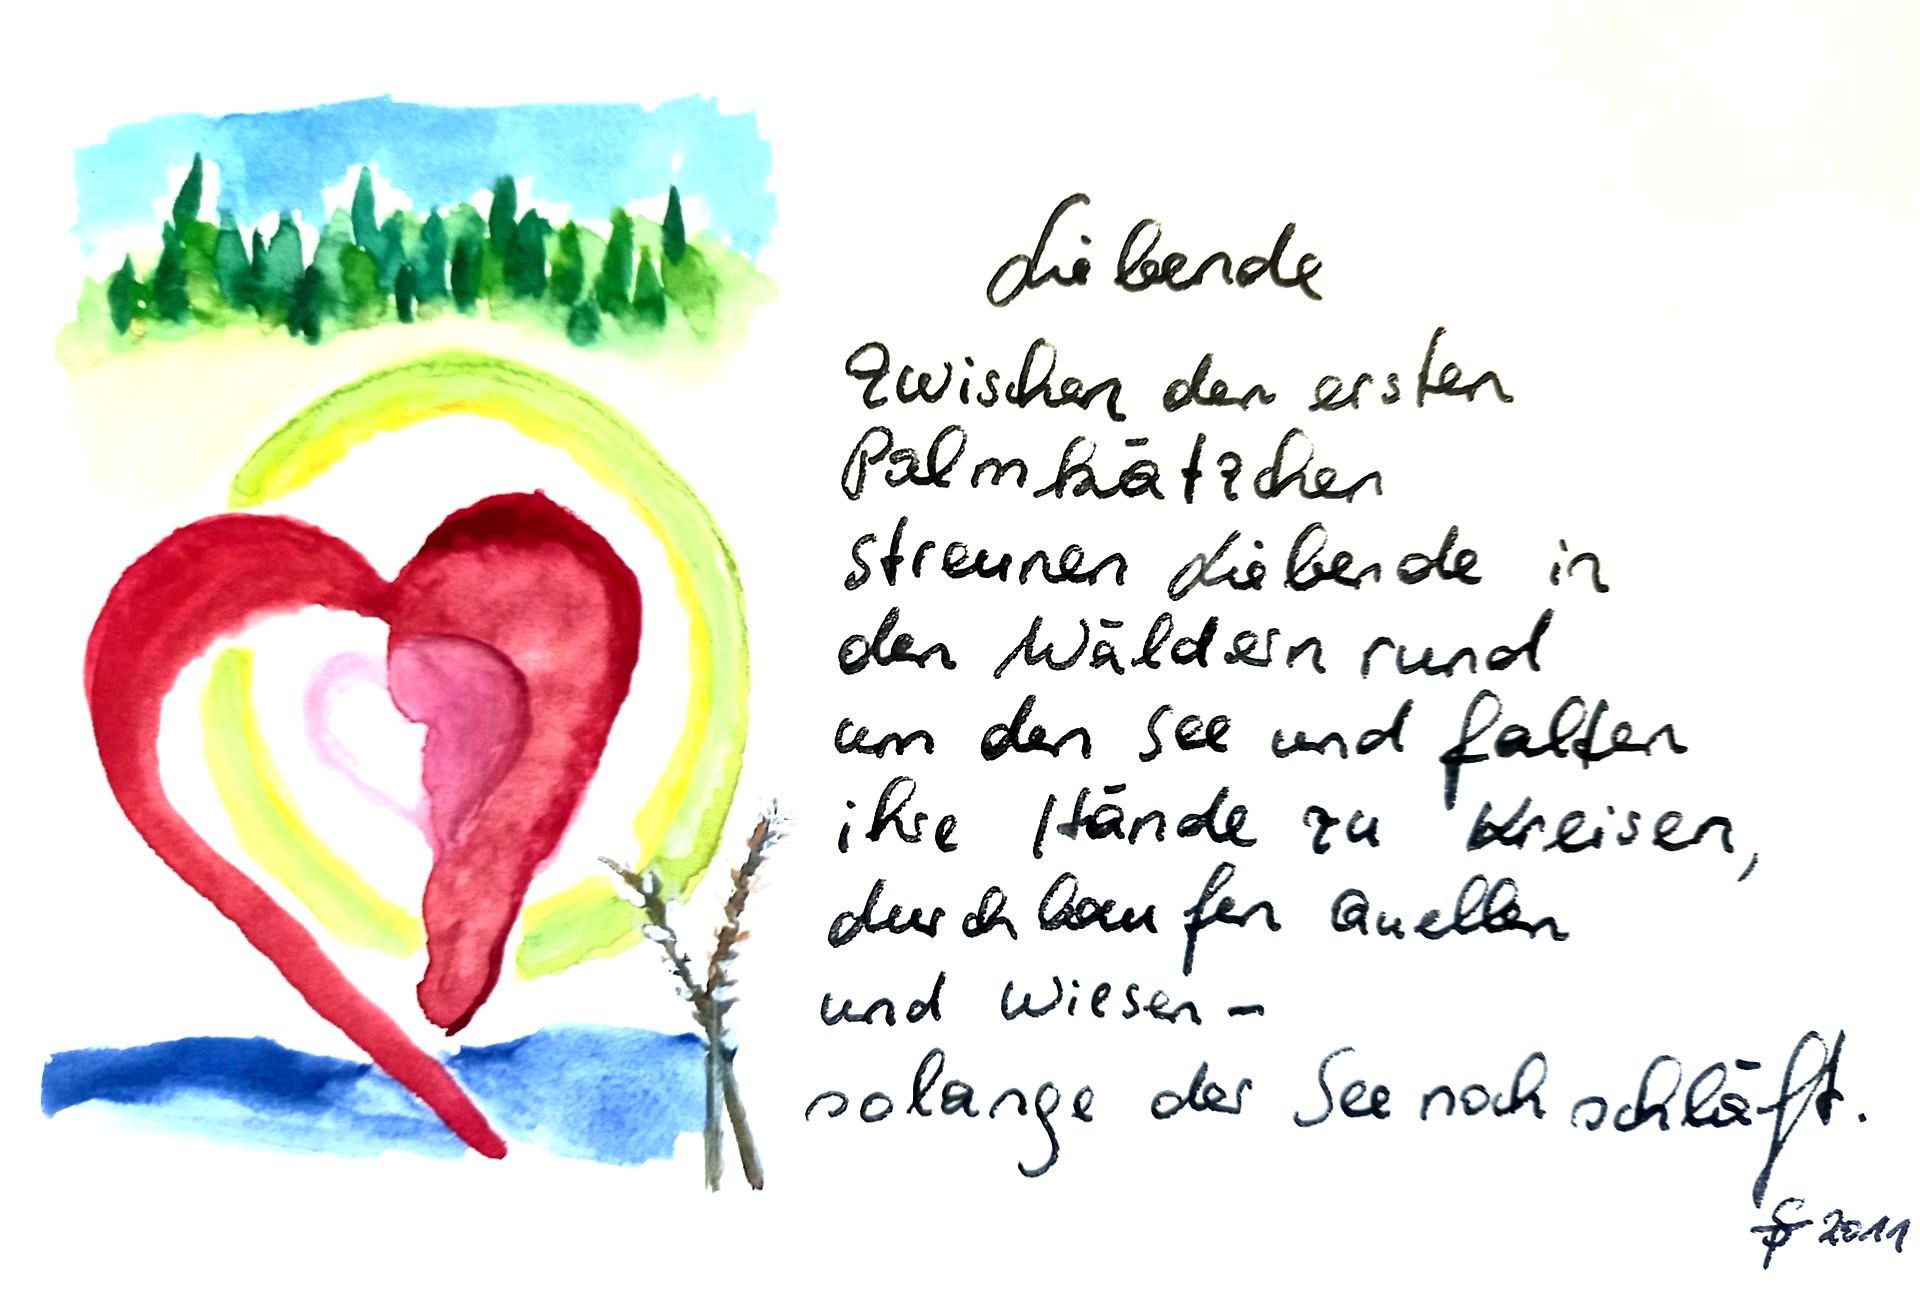 Liebende
Zwischen den ersten
Palmkätzchen
streunen Liebende in
den Wäldern rund
um den See und falten
ihre Hände zu Kreisen,
durchlaufen Quellen
und Wiesen –
solange der See noch schläft.
2011